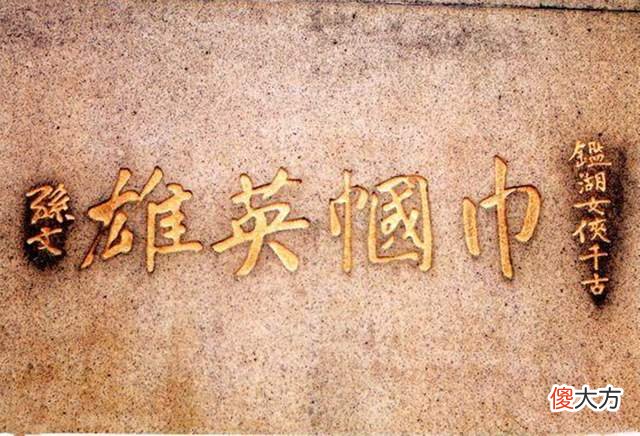 鑑湖女俠千古
巾幗英雄
孫文
傻大方